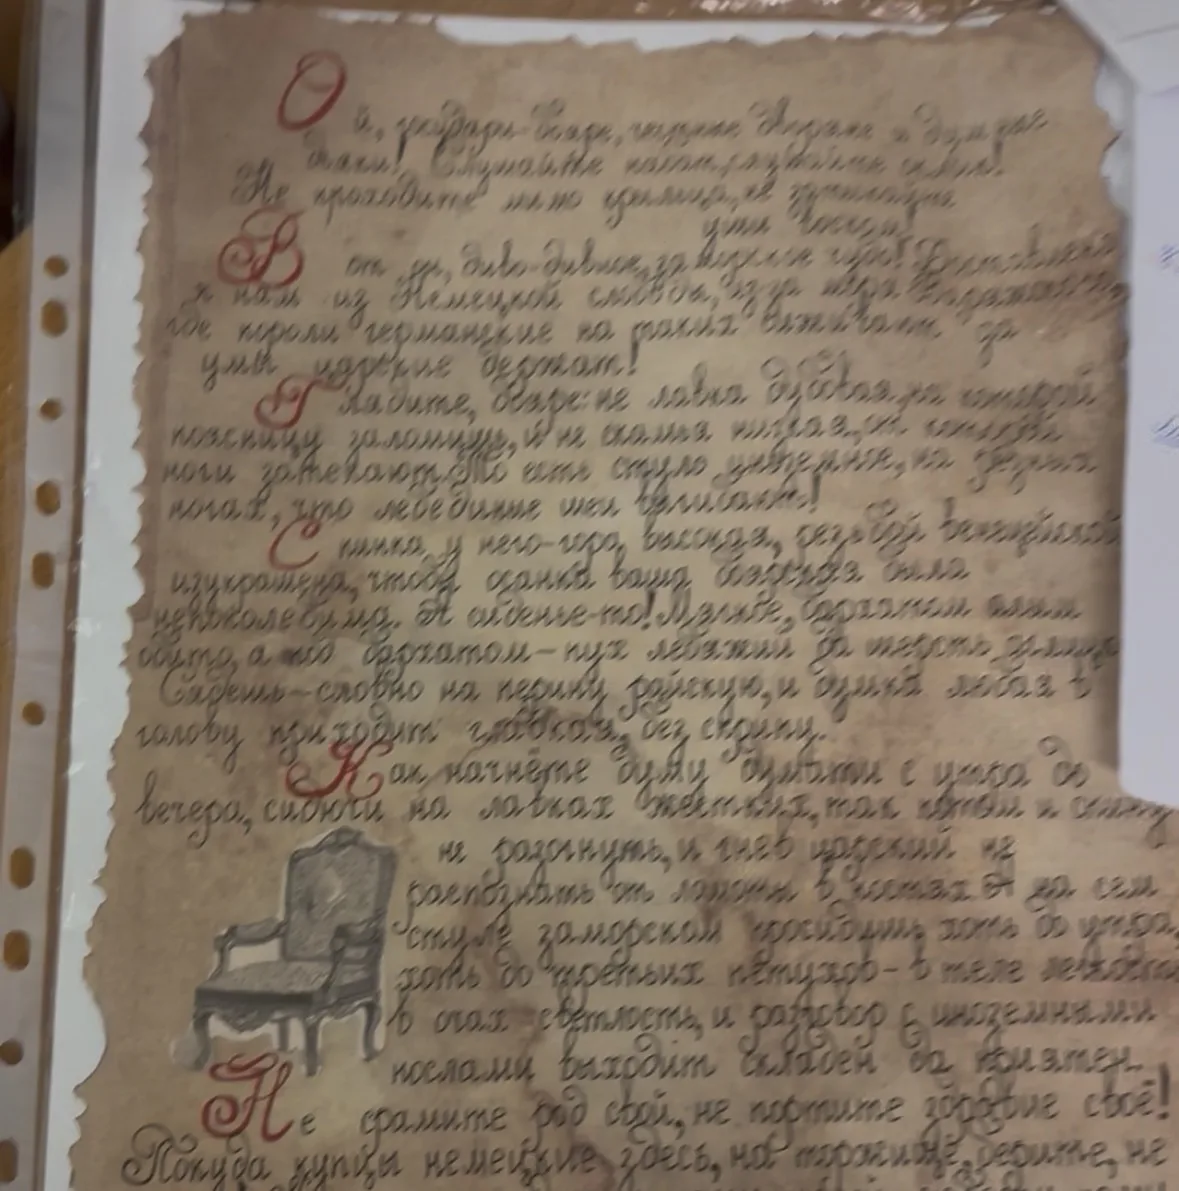 Ой, государи-бояре, честные дворяне и думные
дьяки! Слушайте
Не проходите мимо крыльца, не
уши воском!
Вот он, диво-дивное, заморское чудо! Доставлено
к нам из Немецкой слободы, из-за моря
где короли германские на таких сиживают да
умы царские держат!
Глядите, бояре: не лавка дубовая, на которой
поясницу заломишь, и не скамья низкая, от которой
ноги затекают. То есть стуло на резных
ногах, что лебединые шеи
Спинка у него-гора, высокая, резьбой венецейской
изукрашена, чтобы осанка ваша боярская была
непоколебима. А сиденье-то! Мягкое, бархатом алым
обито, а под бархатом-пух лебяжий да шерсть
Сядешь-словно на перину райскую, и думка любая в
голову приходит гладкая, без скрипу.
Как начнёте думу думати с утра до
вечера, сидючи на лавках жёстких, так потом и спину
не разогнуть, и гнев царский не
распознать от ломоты в костях. А на сем
стуле заморском просидишь хоть до утра,
хоть до третьих петухов-в теле
в очах светлость, и разговор с иноземными
послами выходит складен да приятен.
Не срамите род свой, не портите здоровье своё!
Покуда купцы немецкие здесь, на торжище, берите, не